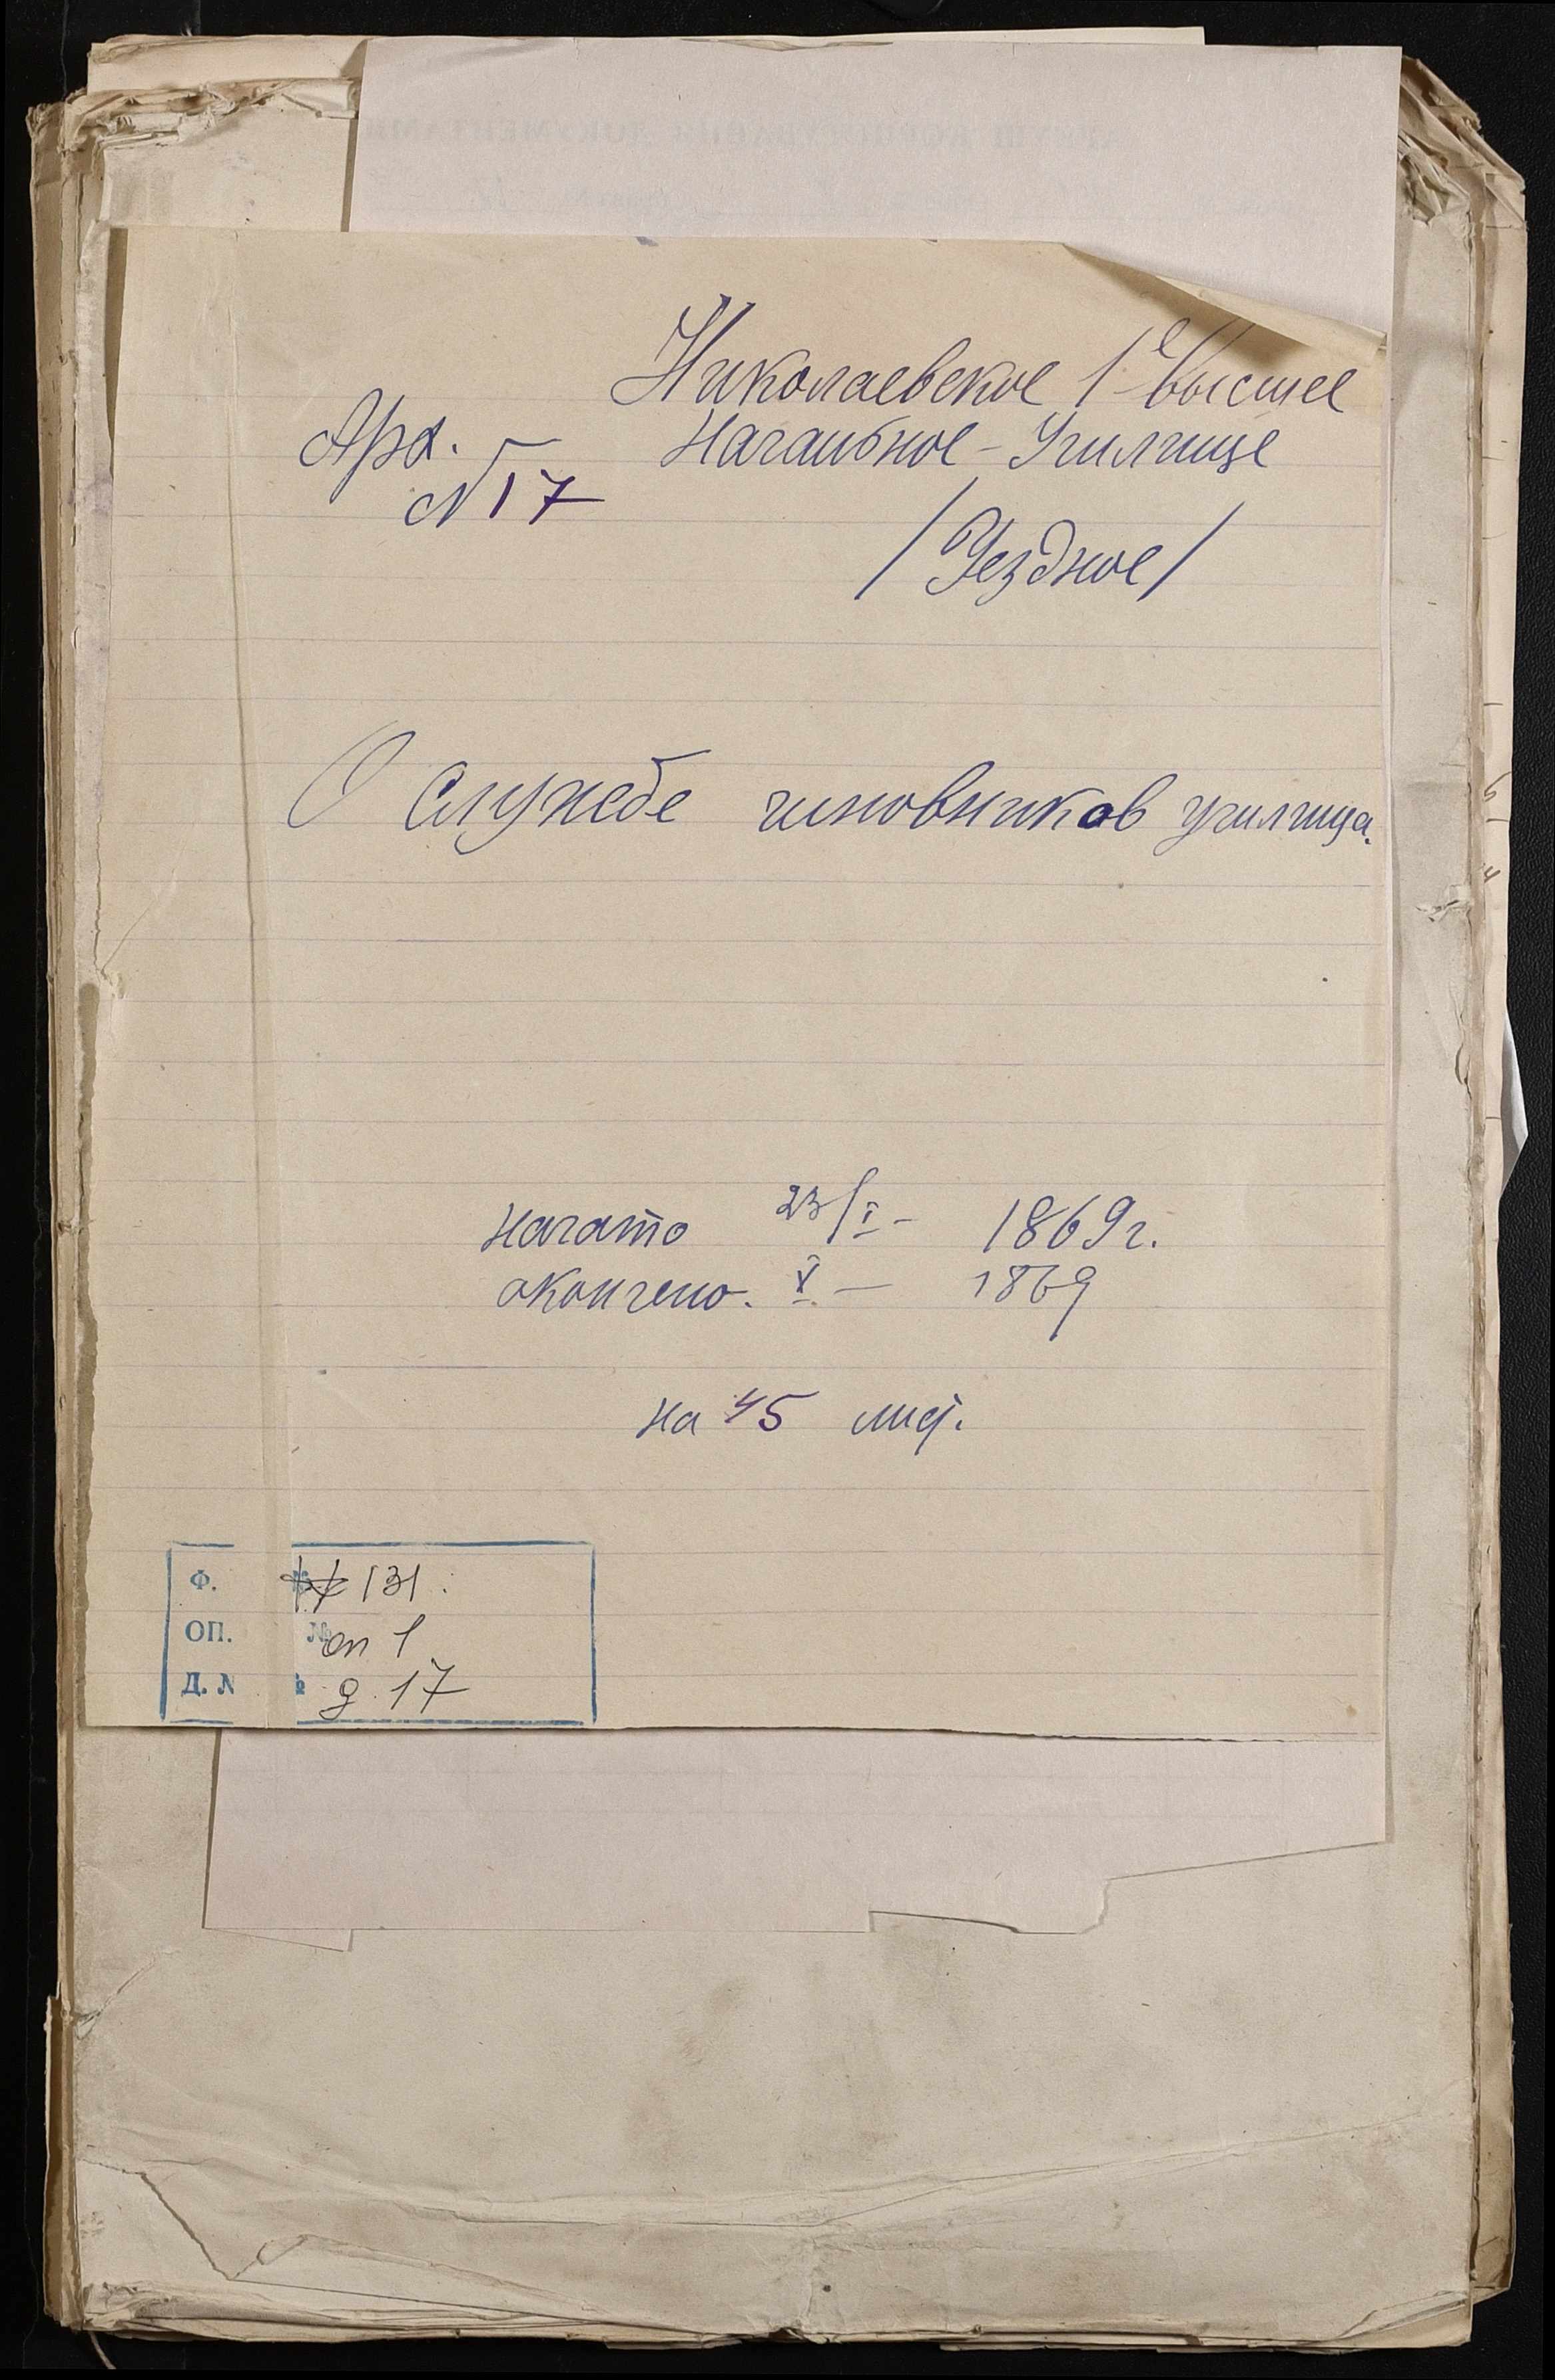 Николаевское 1е Высшее
Арх. Начальное-Училище
№ 17
/Уездное/
О Службе чиновников училища.
начато 23/I - 1869г.
окончено. X - 1869
на 45 лис.
Ф. № 131.
ОП. № оп 1
Д. № д. 17